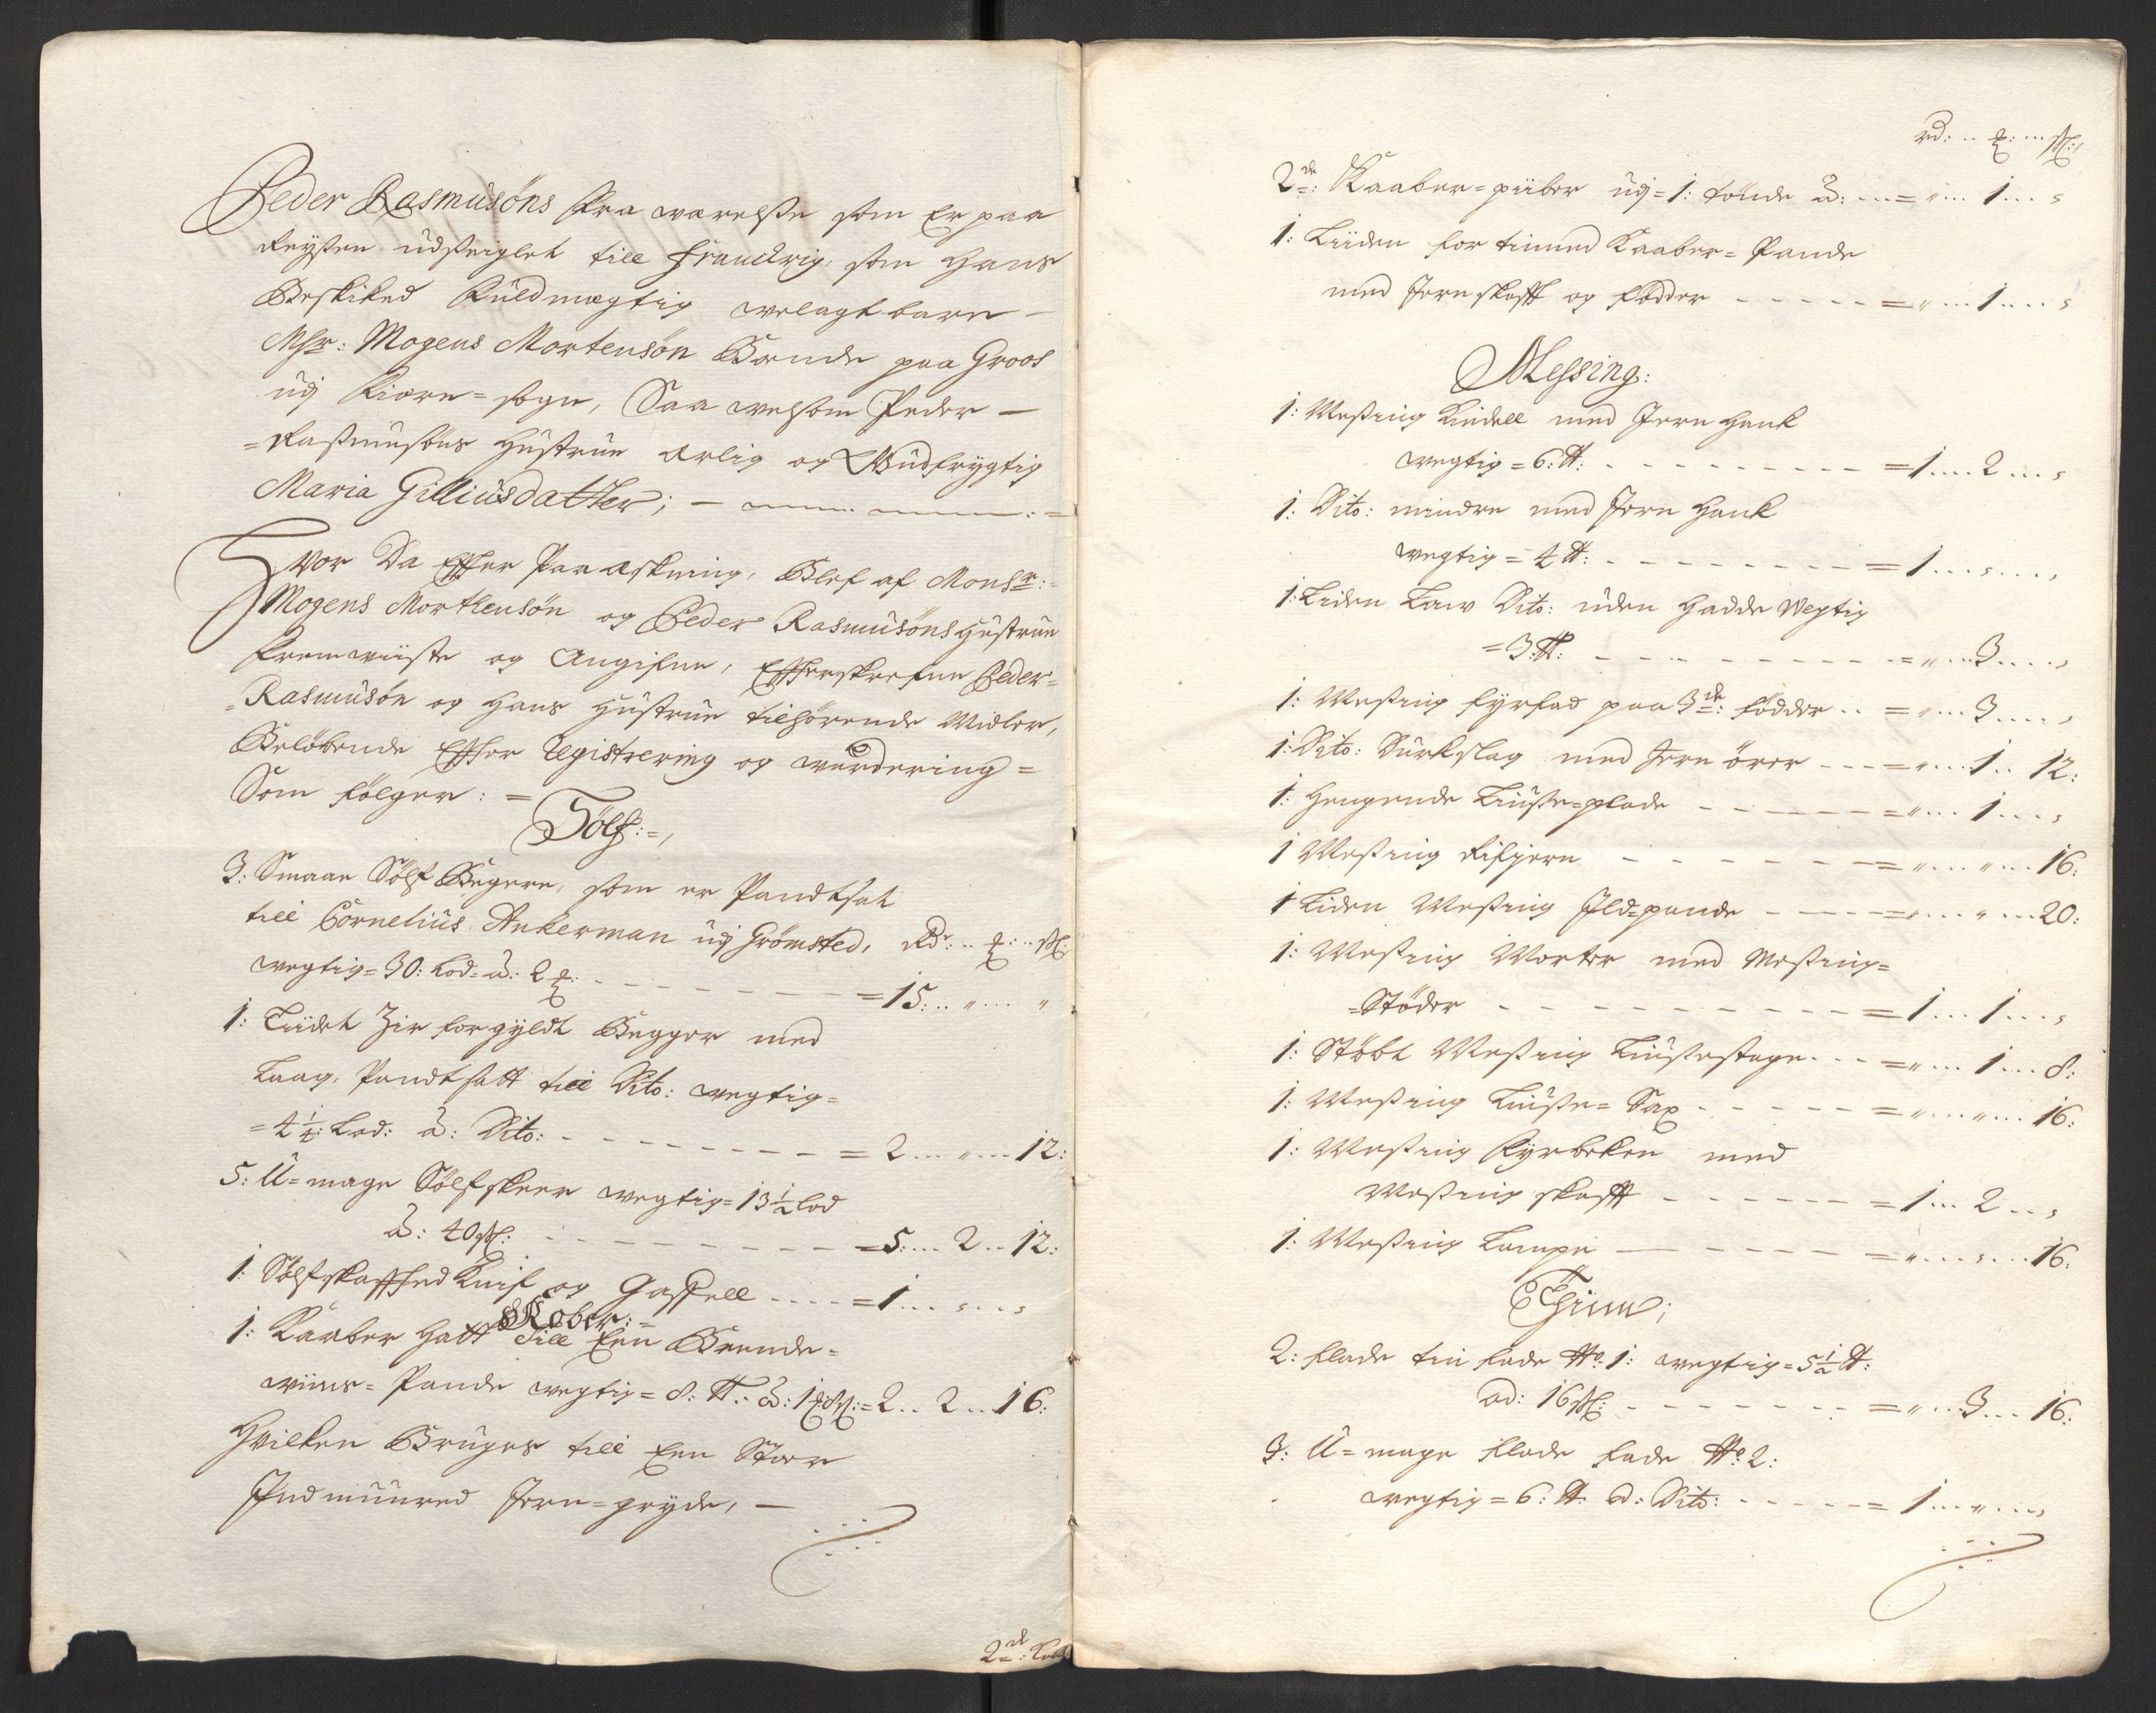 Peder Rasmusøns fra wærelsse som Er paa
Reyssen udseiglet till Franckrig, som Hans
Beskiked Fuldmægtig welagtbare
Msr: Mogens Mortensøn Boende paa Groos
udj Fiære-sogn, Saa welsom Peder
Rassmusøns Hustrue ærlig og Gudfrygtig
Maria Gilliusdatter;
Hvor da effter Paa æskning, Blef af Monsr:
Mogens Mortensøn og Peder Rasmusøns Hustrue
fremwiiste og Angifne, Effterskrefne Peder
Rasmusøn og Hans Hustrue tilhørende Midler,
Beløbende effter Registrering og wurdering
Som følger: =
Sølf:=,
3: Smaae Sølf Begere, som er Pandtsat
till Cornelius Ankerman udj Grømsted, Rdr: .. ℔: .. sk:
wegtig=30: Lod= á: 2 ℔: - - - - =15... „ ... „
1: Liidet Zir forgyldt Begger med
Laag, Pandtsatt till Dito: wegtig=
=4¼: Lod: á: Dito: - - - - = 2 ... „ ... 12:
5: U=mage Sølfskeer wegtig=13½ Lod
á: 40 sk: - - - - =5:... 2 .. 12:
1: Sølfskaffted Knif og Gaffell .... =1... „ ... „
Kober:=
1: Kaaber Hatt Till Een Brende=
wiins= Pande wegtig= 8: ℔: á: 1 ℔ 8 sk:=2 .. 2 .. 16:
Hvilken Bruges till Een Stoor
Indmuured Jern=gryde,
2de: Kaab
rd: .. ℔: ... sk:
2de: Kaaber=piiber udj=1: tønde á: ...= „ ... 1 ... „
1: Liiden for tinned Kaaber= Pande
med Jernskafft og fødder - - - - = „ ... 1 .... „
Messing:
1: Messing Kiedell med Jern Hank
wegtig=6: ℔: - - - - =1.... 2 ... „
1: Dito: mindre med Jern Hank
wegtig=4 ℔: - - - - =1 ... „ ... „
1: Liden Law Dito: uden Hadde Wegtig
=3: ℔: - - - - = „ ... 3 .... „
1: Messing fyrfad paa 3de: fødder .. = „ ... 3 .... „
1: Dito: Durkslag med Jern ører - - - = „ ... 1 .. 12:
1: Hengende Liusse=plade - - - - = „ ... 1 ... „
1 Messing Rifjern - - - - = „ ... „ ... 16:
1 Liden Messing Ild=pande - - - - = „ ... „ ... 20:
1: Messing Morter med Messing=
=Støder - - - - =1 ... 1 ... „
1: Støbt Messing Liussestage - - - = „ ... 1 ... 8:
1: Messing Liusse= Sax - - - - = „ ... „ ... 16:
1: Messing Fyrbeken med
Messing skafft - - - - =1 ... 2 .. „
1: Messing Lampe - - - - = „ ... „ ... 16:
Thinn;
2: flade tin fade No. 1: wegtig=5½ ℔:
ad: 16 sk: - - - - = „ ... 3 ... 16:
3: U=mage flade fade No. 2:
wegtig=6: ℔: á: Dito: - - - - = 1 ... „ ... „